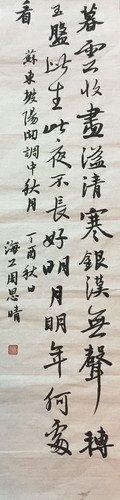 暮雲收盡溢清寒銀漢無聲轉
玉盤此生此夜不長好明月明年何處
看
蘇東坡陽關調中秋月
丁酉秋日
海上周思晴